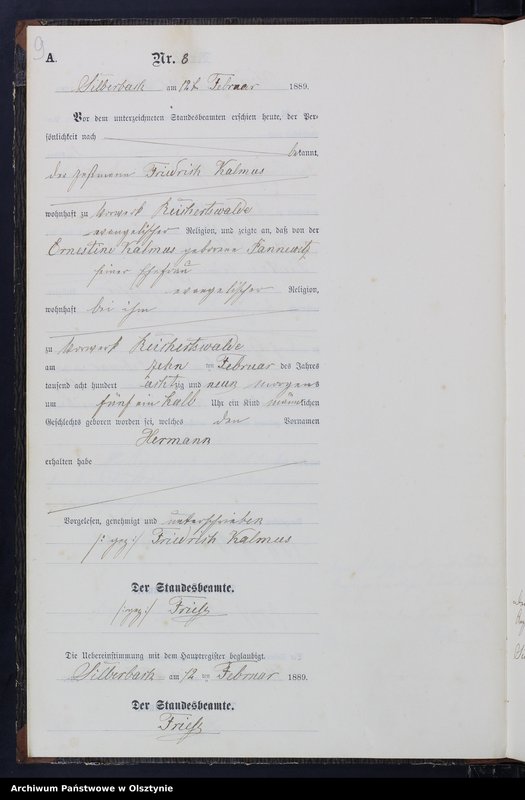 9
A.
Nr. 8
Silberbach am 12t Februar 1889.
Vor dem unterzeichneten Standesbeamten erschien heute, der Per-
sönlichkeit nach
bekannt,
der Friedrich Kalmus
wohnhaft zu Vorwerk Reichertswalde
evangelischer Religion, und zeigte an, daß von der
Ernestine Kalmus geborene Pannewitz
seiner Ehefrau
evangelischer Religion,
wohnhaft bei ihm
zu Vorwerk Reichertswalde
am zehn ten Februar des Jahres
tausend acht hundert achtzig und neun Morgens
um fünf ein halb Uhr ein Kind männlichen
Geschlechts geboren worden sei, welches den Vornamen
Hermann
erhalten habe
Vorgelesen, genehmigt und unterschrieben
/: gez :/ Friedrich Kalmus
Der Standesbeamte.
/: gez :/ Friese
Die Uebereinstimmung mit dem Hauptregister beglaubigt.
Silberbach am 12 ten Februar 1889.
Der Standesbeamte.
Friese
Archiwum Państwowe w Olsztynie